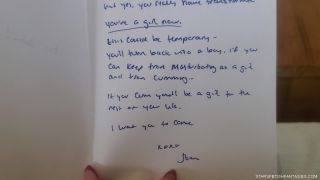 but yes, you really have transformed
you're a girl now.
this could be temporary -
you'll turn back into a boy, if you
can keep from masturbating as a girl
and from cumming..
if you cum you'll be a girl for the
rest of your life.
I want you to cum
xoxo
STARSFETISHFANTASIES.COM